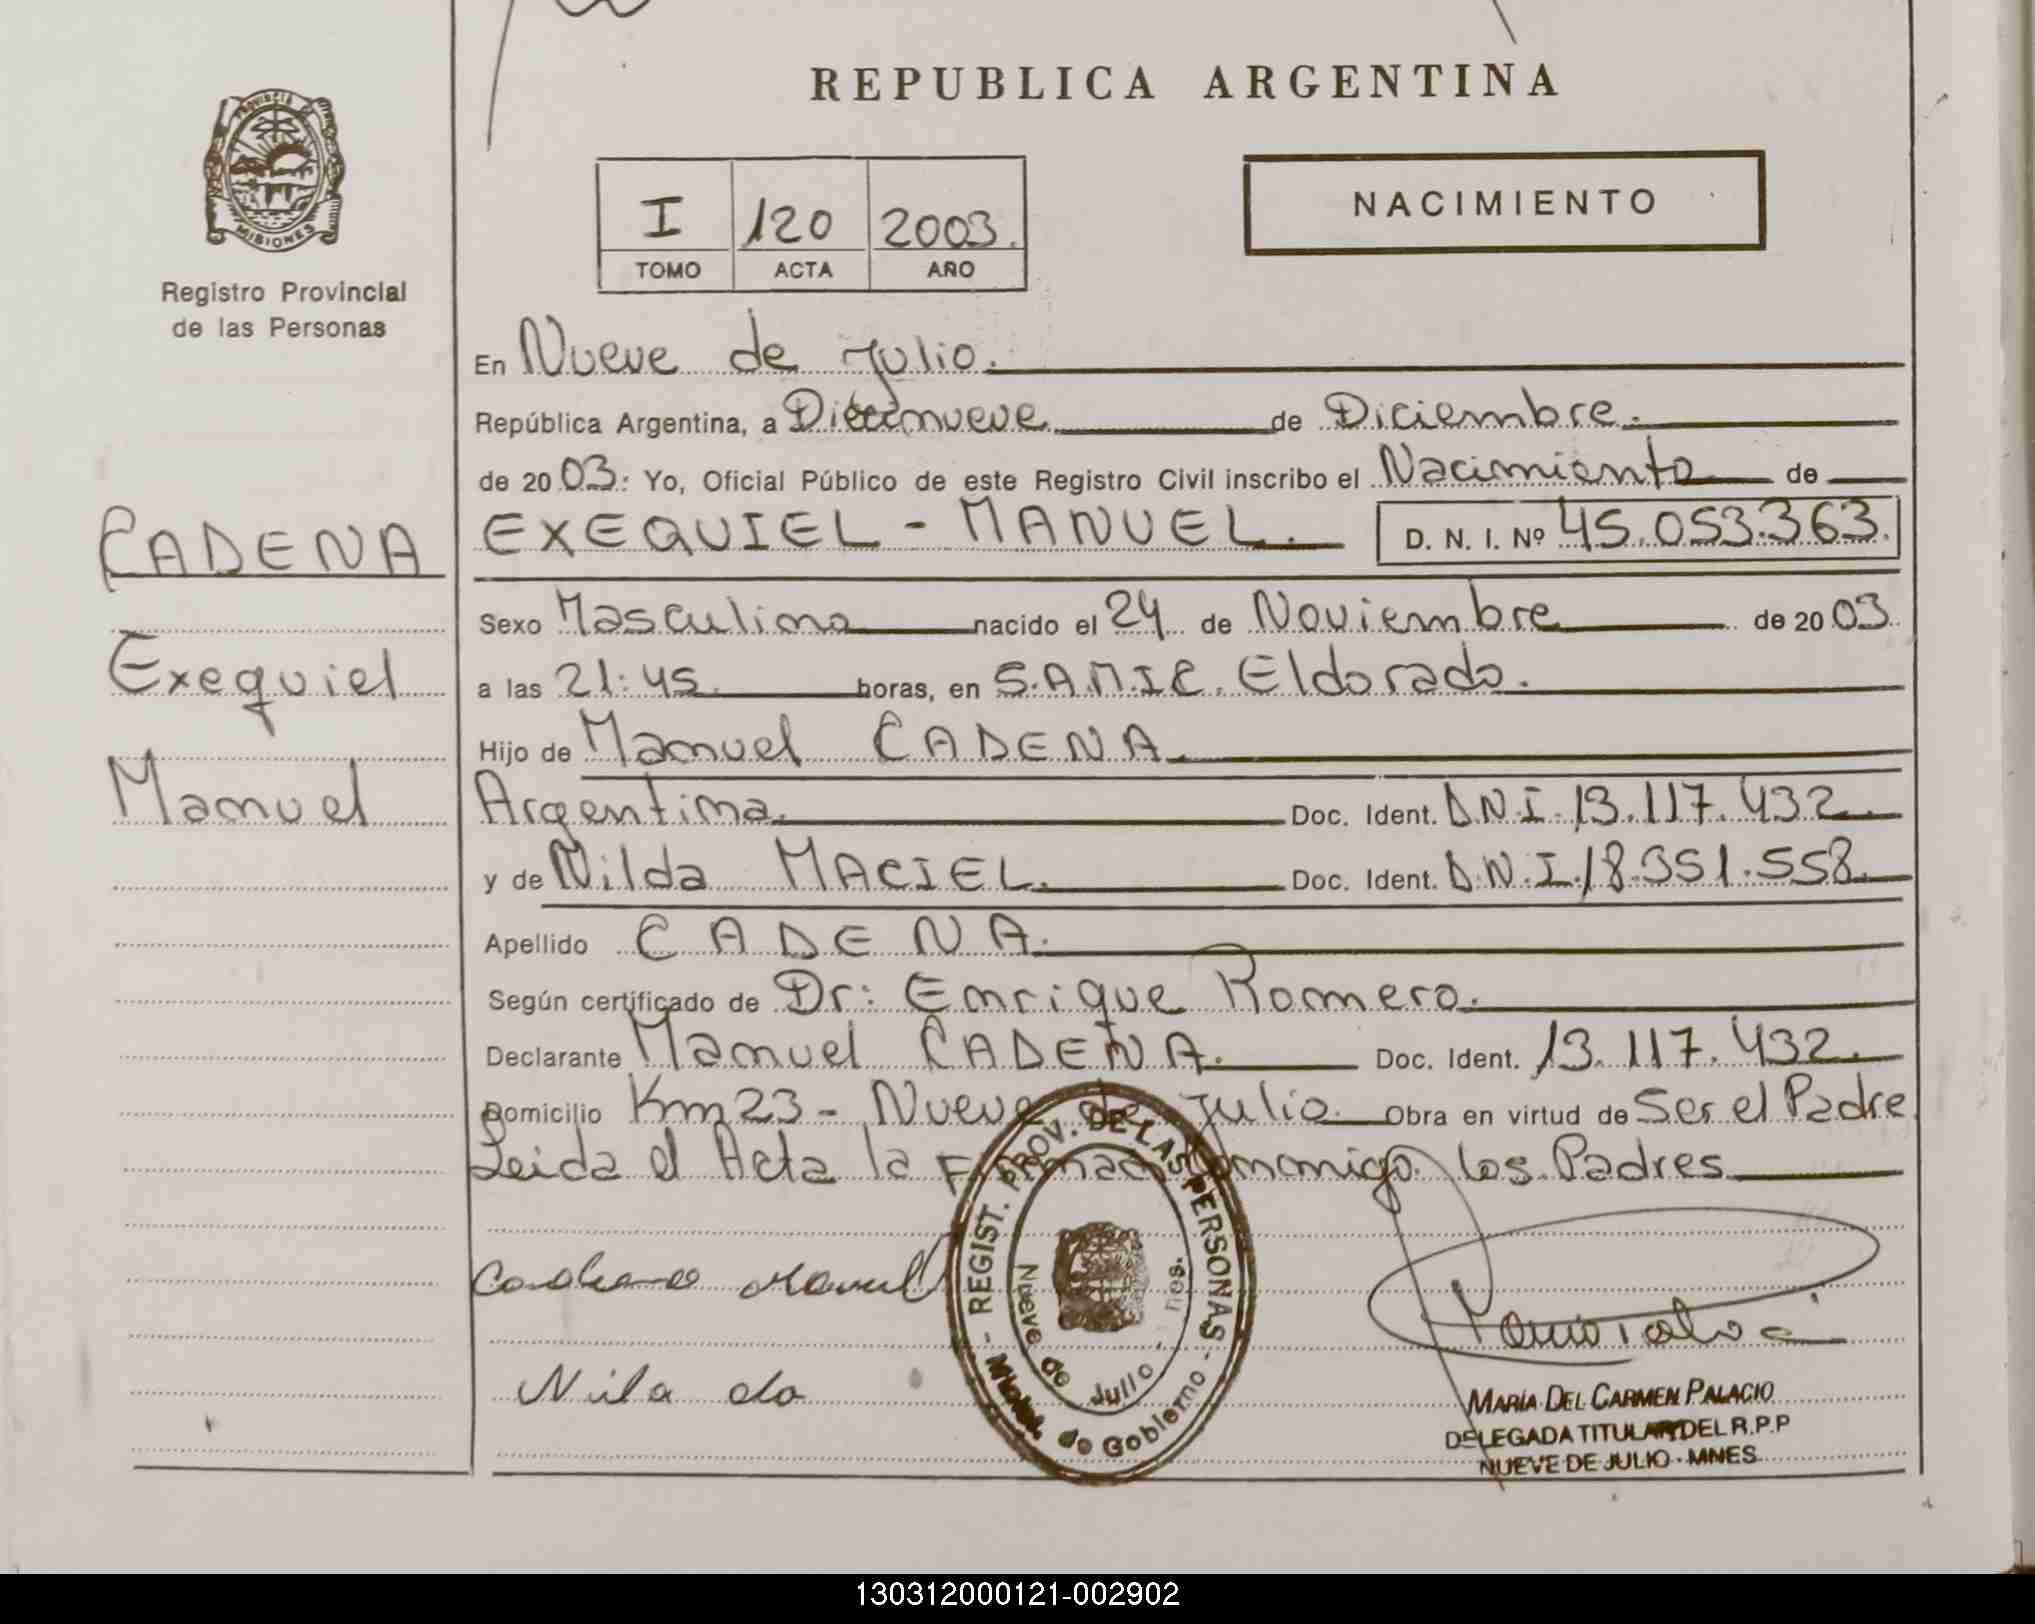 REPUBLICA ARGENTINA
PROVINCIA DE
MISIONES
Registro Provincial
de las Personas
I 120 2003.
TOMO ACTA AÑO
NACIMIENTO
En Nueve de Julio.
República Argentina, a Diecinueve de Diciembre.
de 20 03: Yo, Oficial Público de este Registro Civil inscribo el Nacimiento de
CADENA
EXEQUIEL - MANUEL. D. N. I. Nº 45.053.363.
Sexo Masculino nacido el 24 de Noviembre de 20 03.
Exequiel
a las 21:45 horas, en S.A.M.I.C. Eldorado.
Hijo de Manuel CADENA
Manuel
Argentina. Doc. Ident. D.N.I. 13.117.432.
y de Nilda MACIEL. Doc. Ident. D.N.I. 18.351.558.
Apellido CADENA.
Según certificado de Dr: Enrique Romero.
Declarante Manuel CADENA. Doc. Ident. 13.117.432.
Domicilio Km 23 - Nueve de Julio. Obra en virtud de Ser el Padre
Leida el Acta la Firman Conmigo los Padres
REGIST. PROV. DE LAS PERSONAS
Nueve de Julio
de Gobierno
Manuel
MARÍA DEL CARMEN PALACIO
DELEGADA TITULAR DEL R.P.P
NUEVE DE JULIO - MNES
130312000121-002902